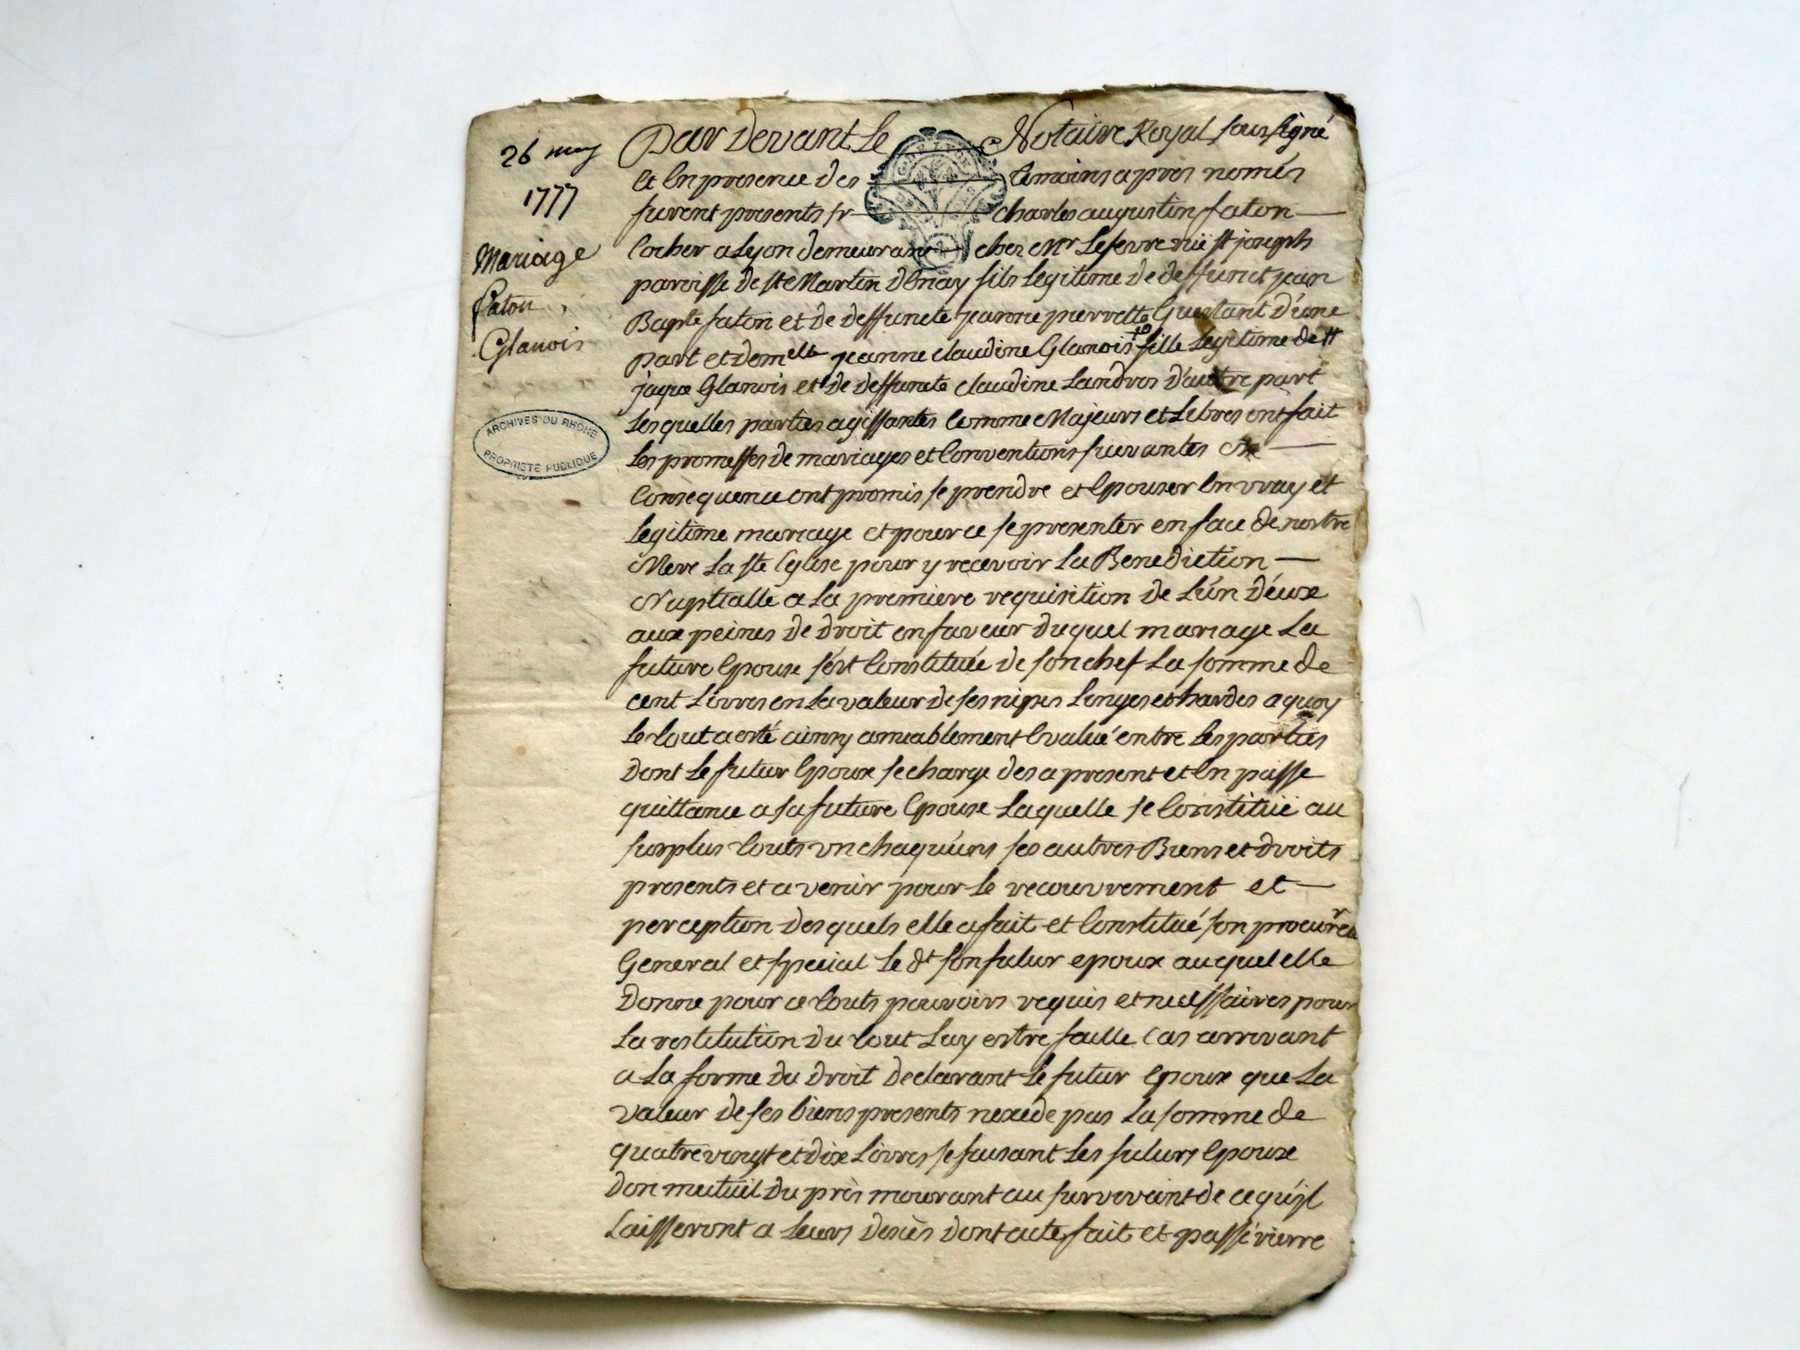 26 may
1777
Mariage
faton
Glanois
ARCHIVES DU RHÔNE
PROPRIETE PUBLIQUE
Par Devant Le Notaire Royal soussigné
et En presence des temoins apres només
furent presents sr charles augustin faton
Cocher a Lyon demeurant chez Mr Lefevre rüe st joseph
paroisse de st Martin d'Enay fils Legitime de deffunct jean
Bapte faton et de deffuncte jeanne pierrette d'une
part et demelle jeanne claudine Glanois fille Legitime de
jaque Glanois et de deffuncte claudine Landros d'autre part
Lesquelles parties agissantes Comme Majeurs et Libres ont fait
Les promesses de mariages et Conventions suivantes
Consequence ont promis se prendre et Epouser En vray et
Legitime mariage et pour ce se presenter en face de nostre
Mere La ste Eglise pour y recevoir La Benediction
Nuptialle a La premiere requisition de L'ún d'éux
aux peines de droit en faveur duquel mariage La
future Epouse s'est Constituée de son chef La somme de
cent Livres en La valeur de ses nipes Linges et hardes a quoy
Le tout a esté ainsy amiablement Evalué entre Les parties
dont Le futur Epoux se charge des a present et En passe
quittance a sa future Epouse Laquelle se Constitüe au
surplus touts un chaqu'uns ses autres Biens et droits
presents et a venir pour Le recouvrement et
perception desquels elle a fait et Constitué son
General et special Le dt son futur epoux auquel elle
donne pour ce touts pouvoirs requis et necessaires pour
La restitution du tout Luy estre faitte Cas arrivant
a La forme du droit declarant Le futur Epoux que La
valeur de ses biens presents nexede pas La somme de
quatre vingt et dix Livres se faisant Les futurs Epoux
don mutuël du prés mourant au survivant de ce qu'il
Laisseront a Leurs decès dont acte fait et passé